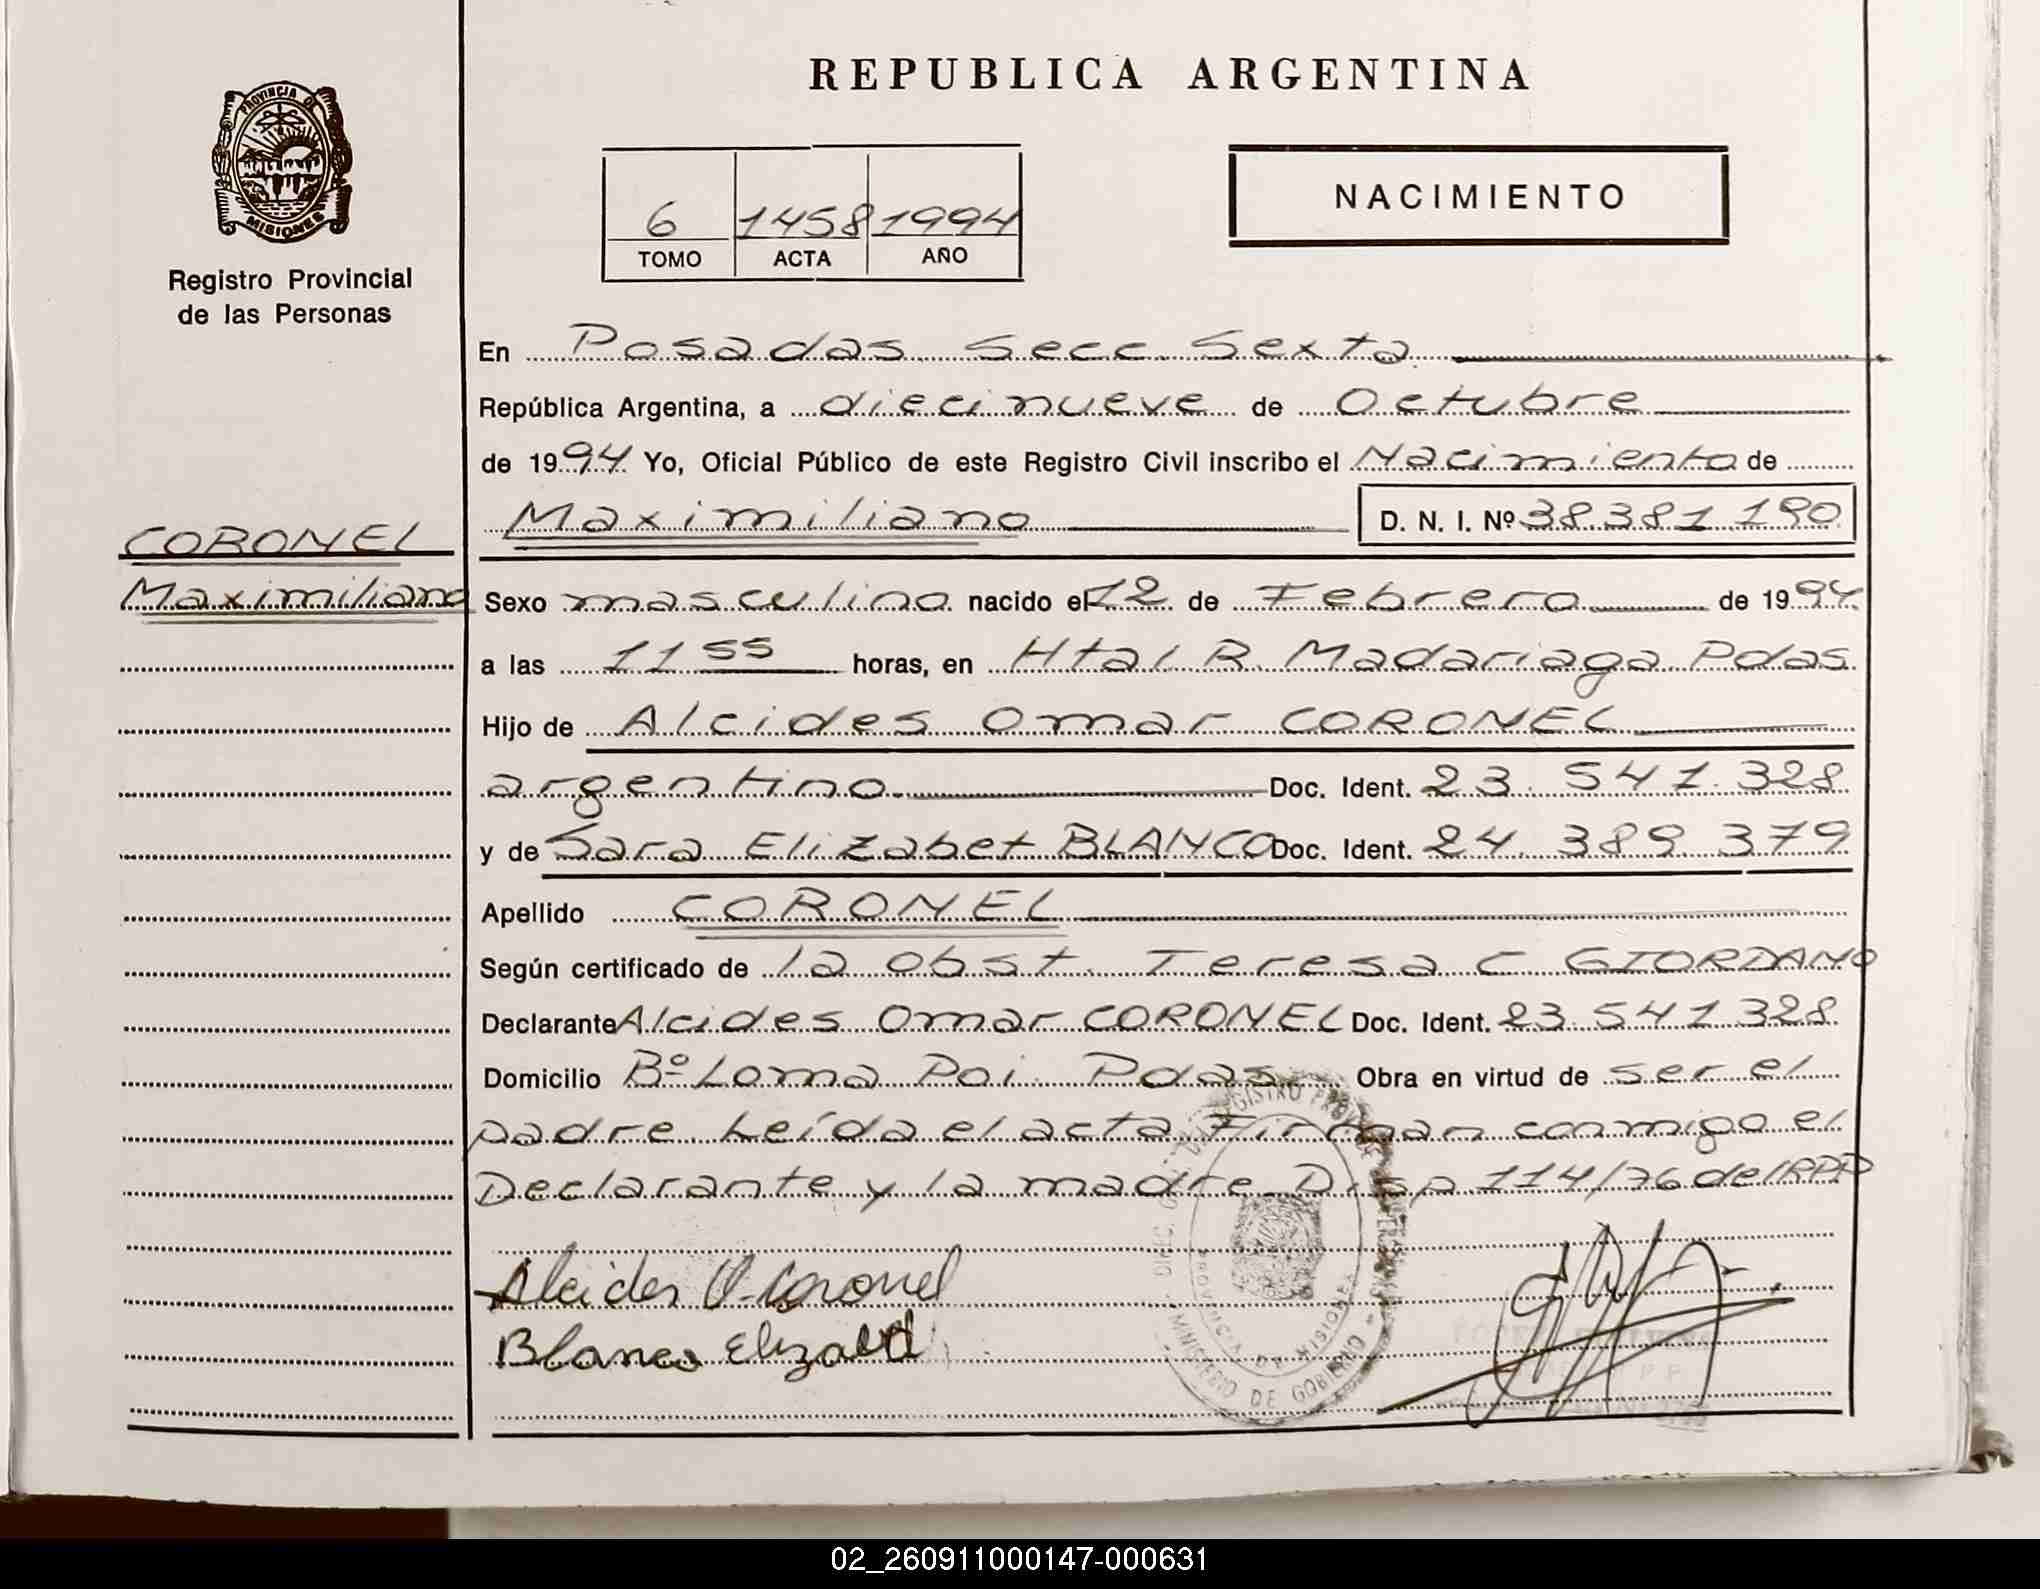 REPUBLICA ARGENTINA
PROVINCIA DE
MISIONES
Registro Provincial
de las Personas
6 1458 1994
TOMO ACTA AÑO
NACIMIENTO
En Posadas Secc. Sexta
República Argentina, a diecinueve de Octubre
de 1994 Yo, Oficial Público de este Registro Civil inscribo el Nacimiento de
Maximiliano D. N. I. Nº 38.381.190
CORONEL
Maximiliano
Sexo masculino nacido el 12 de Febrero de 1994
a las 11 55 horas, en Htal R. Madariaga Pdas
Hijo de Alcides Omar CORONEL
argentino Doc. Ident. 23.541.328
y de Sara Elizabet BLANCO Doc. Ident. 24.389 379
Apellido CORONEL
Según certificado de la Obst. Teresa C GIORDANO
Declarante Alcides Omar CORONEL Doc. Ident. 23.541.328
Domicilio Bº Loma Poi. Pdas Obra en virtud de ser el
padre. Leída el acta Firman conmigo el
Declarante y la madre Disp 114/76 del RPP
Alcides O. Coronel
Blanco Elizabet
REGISTRO
PROVINCIA DE MISIONES
MINISTERIO DE GOBIERNO
02_260911000147-000631